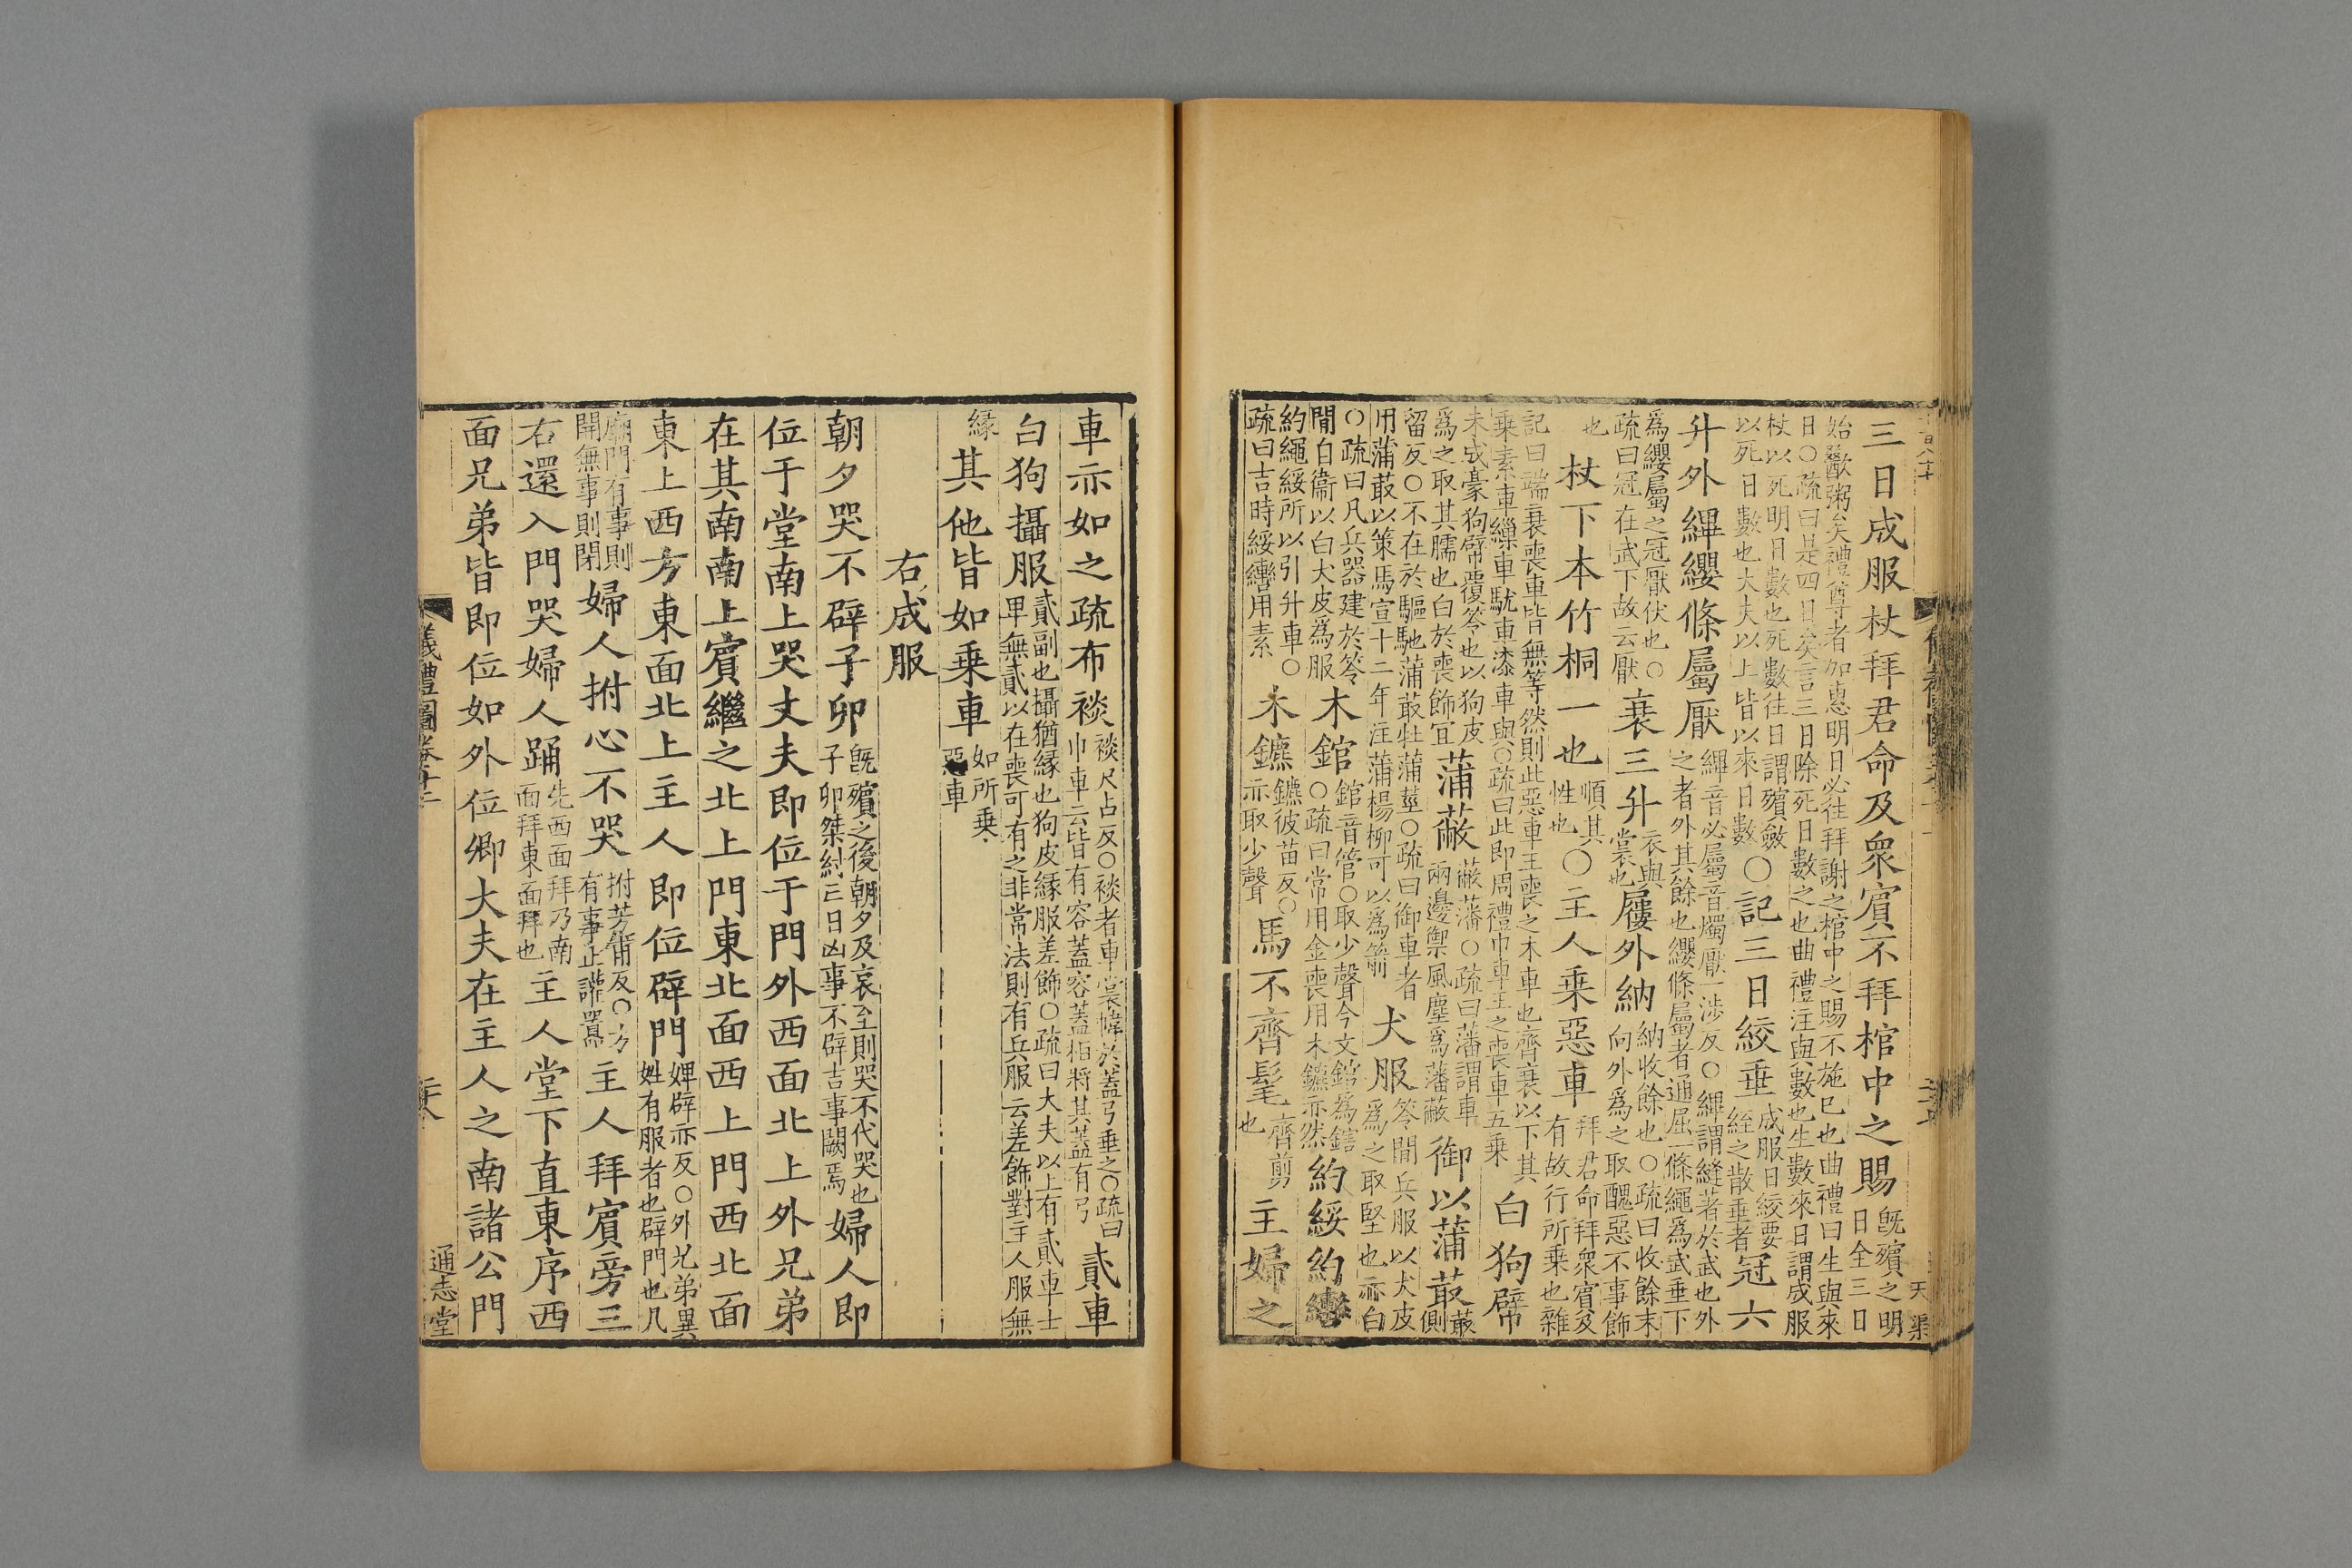 三日成服杖拜君命及衆賓不拜棺中之賜旣殯之明日全三日
始歠粥矣禮尊者加惠明日必往拜謝之棺中之賜不施巳也曲禮曰生與來
日○疏曰是四日矣言三日除死日數之也曲禮注與數也生數來日謂成服
杖以死明日數也死數往日謂殯斂
以死日數也大夫以上皆以來日數○記三日絞垂成服日絞要絰之散垂者冠六
升外縪纓條屬厭縪音必屬音燭厭一涉反○縪謂縫著於武也外之者外其餘也纓條屬者通屈一條繩爲武垂下
爲纓屬之冠厭伏也○
疏曰冠在武下故云厭衰三升衣與裳也屨外納納收餘也○疏曰收餘末向外爲之取醜惡不事飾
也杖下本竹桐一也順其性也○主人乗惡車拜君命拜衆賓及有故行所乗也雜
記曰端衰喪車皆無等然則此惡車王喪之木車也齊衰以下其
乗素車繅車駹車漆車與○疏曰此即周禮巾車王之喪車五乗白狗幦
未成豪狗幦覆笭也以狗皮
爲之取其臑也白於喪飾宜蒲蔽蔽藩○疏曰藩謂車兩邊禦風塵爲藩蔽御以蒲菆菆側
留反○不在於驅馳蒲菆牡蒲莖○疏曰御車者
用蒲菆以策馬宣十二年注蒲楊柳可以爲箭犬服笭間兵服以犬皮爲之取堅也亦白
○疏曰凡兵器建於笭
間白衞以白犬皮爲服木錧錧音管○取少聲今文錧爲鎋○疏曰常用金喪用木鑣亦然約綏約轡
約繩綏所以引升車○
疏曰吉時綏轡用素木鑣鑣彼苗反○亦取少聲馬不齊髦齊剪也主婦之
車亦如之疏布裧裧尺占反○裧者車裳幃於蓋弓垂之○疏曰巾車云皆有容蓋容蓋相將其蓋有弓貳車
白狗攝服貳副也攝猶緣也狗皮緣服差飾○疏曰大夫以上有貳車士卑無貳以在喪可有之非常法則有兵服云差飾對主人服無
緣其他皆如乗車如所乗惡車
右成服
朝夕哭不辟子卯旣殯之後朝夕及哀至則哭不代哭也子卯桀紂亡日凶事不辟吉事闕焉婦人即
位于堂南上哭丈夫即位于門外西面北上外兄弟
在其南南上賓繼之北上門東北面西上門西北面
東上西方東面北上主人即位辟門婢辟亦反○外兄弟異姓有服者也辟門也凡
廟門有事則
開無事則閉婦人拊心不哭拊芳甫反○方有事止讙嚻主人拜賓旁三
右還入門哭婦人踊先西面拜乃南面拜東面拜也主人堂下直東序西
面兄弟皆即位如外位卿大夫在主人之南諸公門
儀禮圖卷十二
通志堂